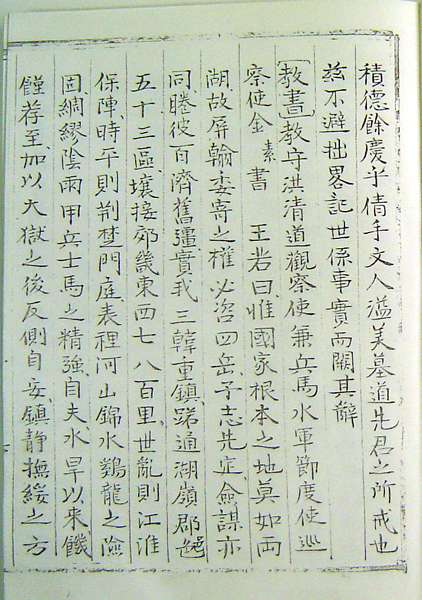 積德餘慶乎倩手文人溢美墓道先君之所戒也
玆不避拙畧記世係事實而闕其辭
教書 教守洪清道觀察使兼兵馬水軍節度使巡
察使金素書 王若曰惟國家根本之地莫如兩
湖故屏翰委寄之權必咨四岳予志先定僉謀亦
同睠彼百濟舊疆實我三韓重鎮踞通湖嶺郡邑
五十三區壤接郊畿東四七八百里世亂則江淮
保陣時平則荊楚門庭表裡河山錦水鷄龍之險
固綢繆陰雨甲兵士馬之精強自夫水旱以來饑
饉荐至加以大獄之後反側自妄鎮靜撫綏之方